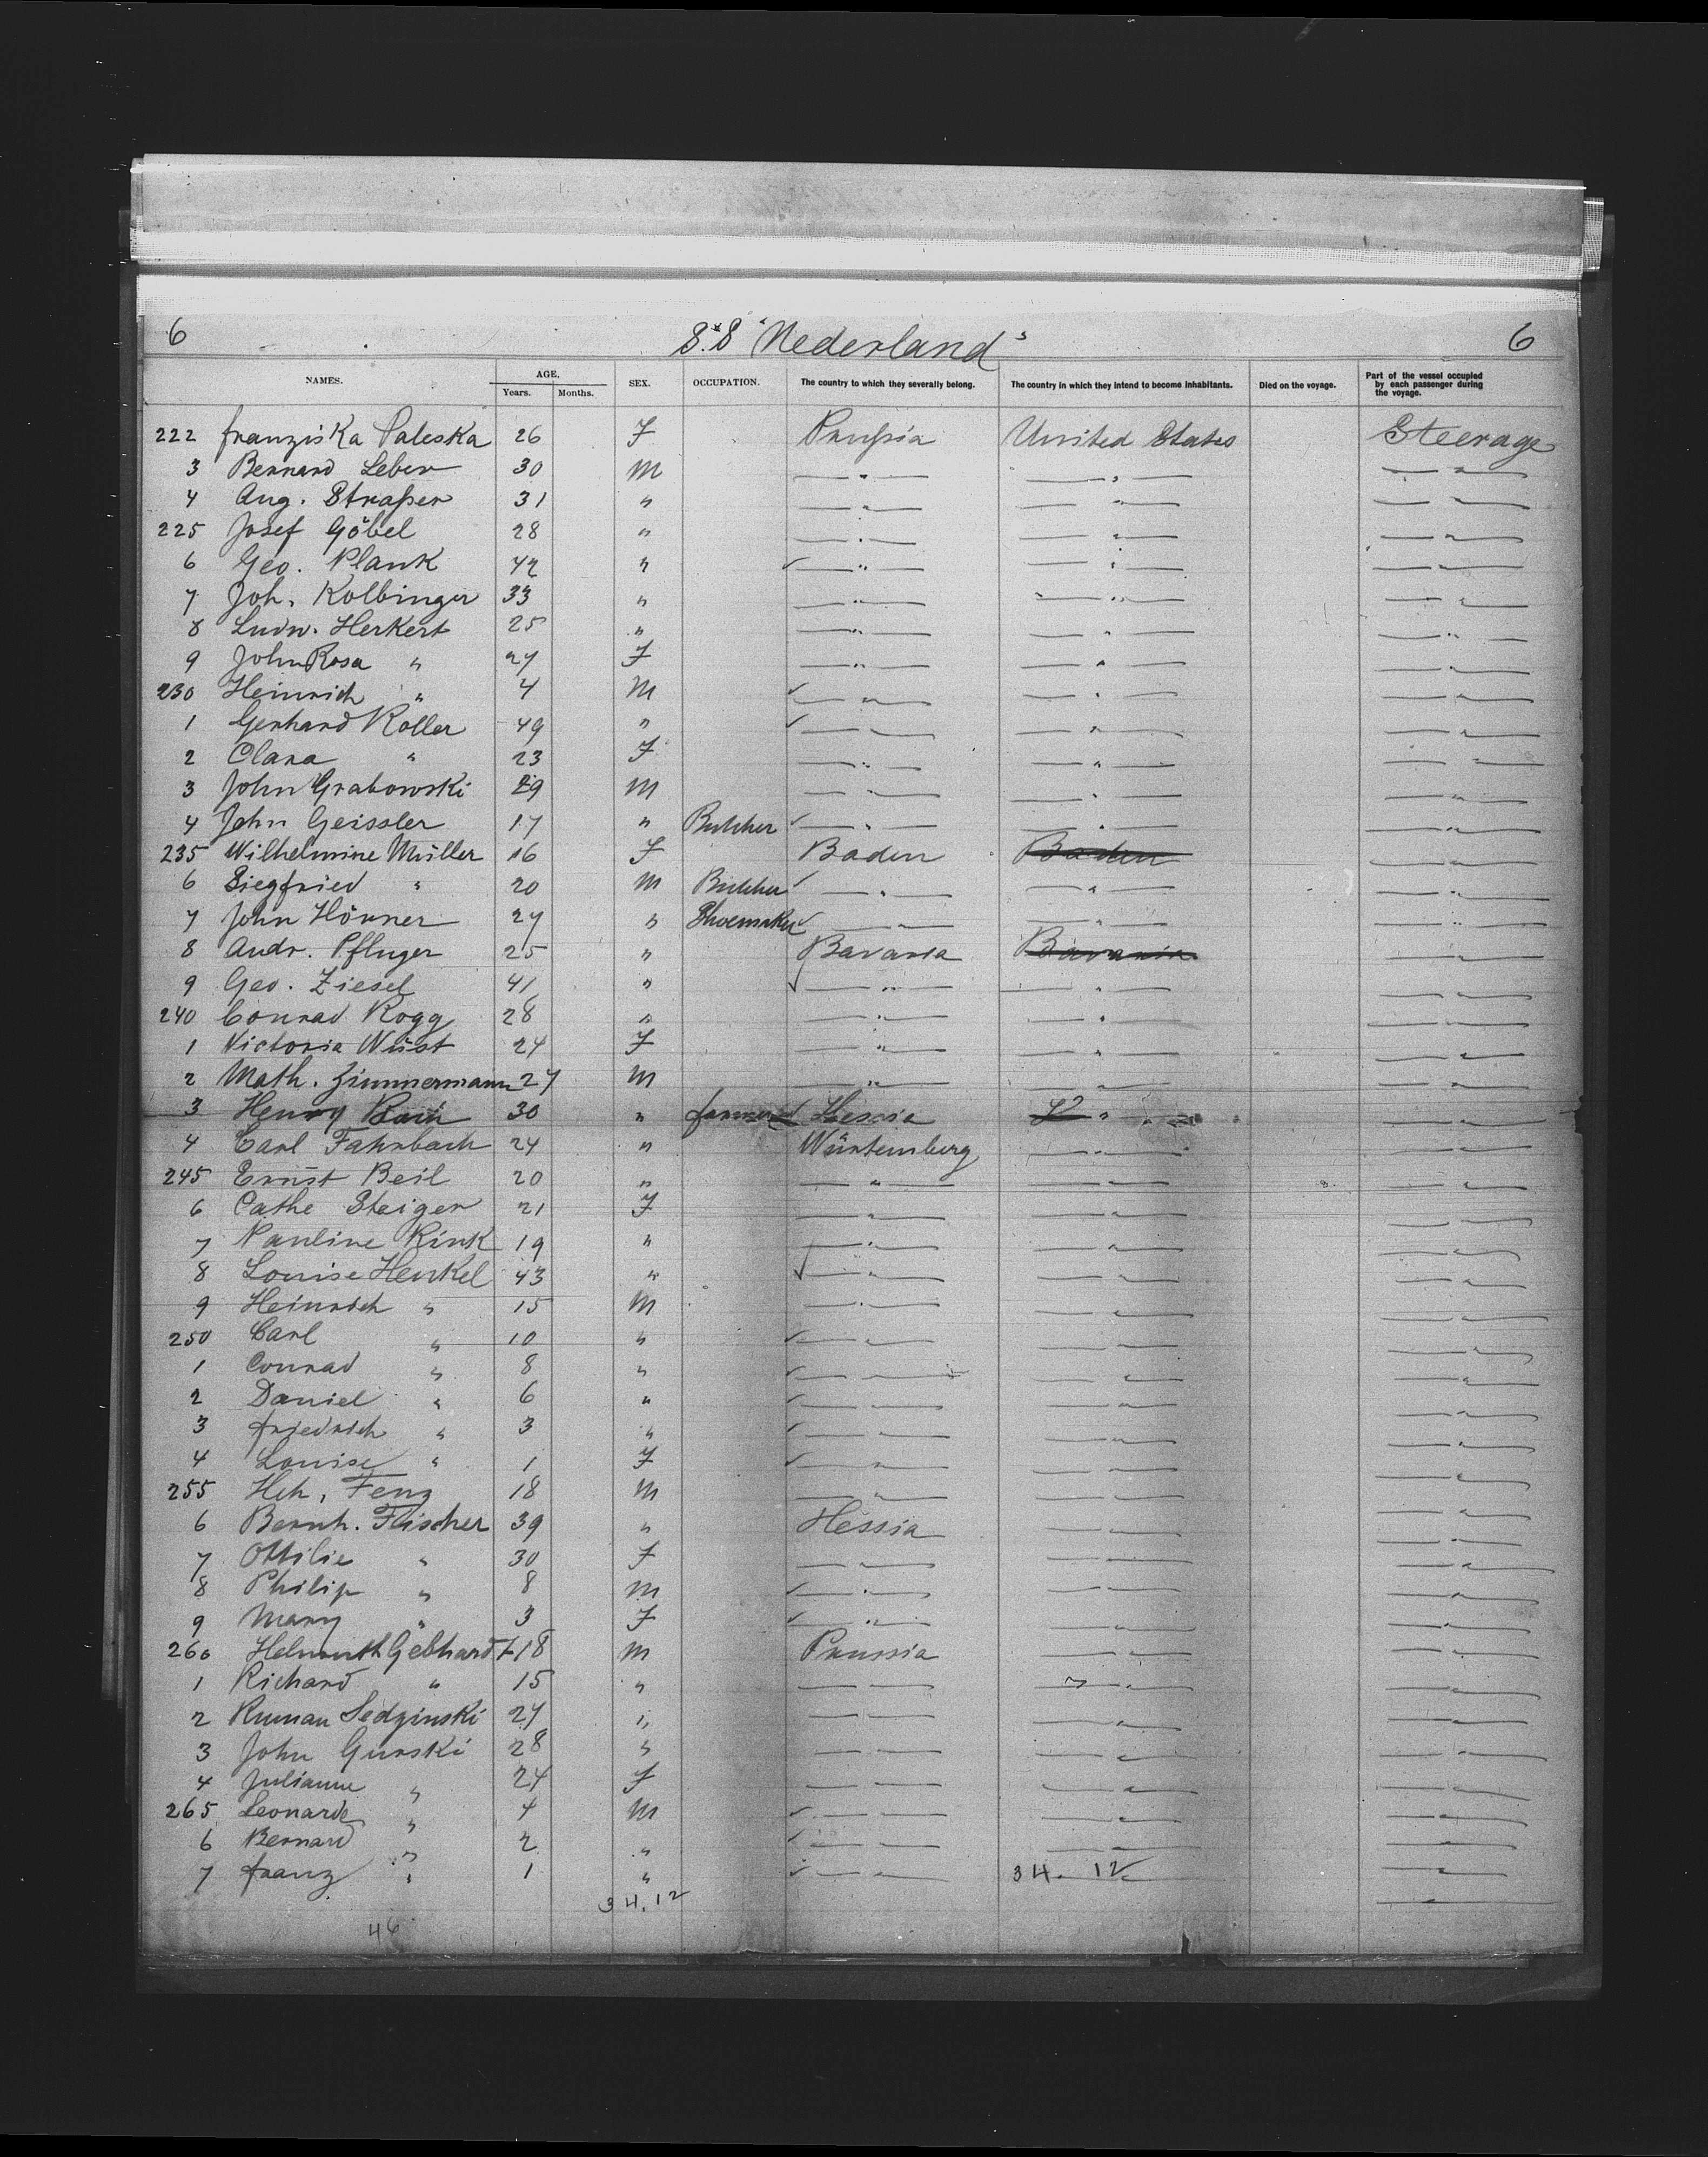 6 S.S "Nederland" 6
NAMES. AGE. Years. Months. SEX. OCCUPATION. The country to which they severally belong. The country in which they intend to become inhabitants. Died on the voyage. Part of the vessel occupied by each passenger during the voyage.
222 Franziska Paleska 26 F Prußia United States Steerage
3 Bernard Leber 30 M — " — — " — — " —
4 Aug. Straßer 31 " — " — — " — — " —
225 Josef Göbel 28 " — " — — " — — " —
6 Geo. Plank 42 " — " — — " — — " —
7 Joh. Kolbinger 33 " — " — — " — — " —
8 Ludw. Herkert 25 " — " — — " — — " —
9 John Rosa " 27 F — " — — " — — " —
230 Heinrich " 4 M — " — — " — — " —
1 Gerhard Koller 49 " — " — — " — — " —
2 Clara " 23 F — " — — " — — " —
3 John Grabowski 29 M — " — — " — — " —
4 John Geissler 17 " Butcher — " — — " — — " —
235 Wilhelmine Müller 16 F Baden Baden — " —
6 Siegfried " 20 M Butcher — " — — " — — " —
7 John Hörner 27 " Shoemaker — " — — " — — " —
8 Andr. Pfluger 25 " Bavaria Bavaria — " —
9 Geo. Ziesel 41 " — " — — " — — " —
240 Conrad Rogg 28 " — " — — " — — " —
1 Victoria Wüst 24 F — " — — " — — " —
2 Math. Zimmermann 27 M — " — — " — — " —
3 Henry 30 " farmer Hessia " — " —
4 Carl Fahrbach 24 " Würtemberg — " — — " —
245 Ernst Beil 20 " — " — — " — — " —
6 Cathe Steiger 21 F — " — — " — — " —
7 Pauline Rink 19 " — " — — " — — " —
8 Louise Henkel 43 " — " — — " — — " —
9 Heinrich " 15 M — " — — " — — " —
250 Carl " 10 " — " — — " — — " —
1 Conrad " 8 " — " — — " — — " —
2 Daniel " 6 " — " — — " — — " —
3 Friedrich " 3 " — " — — " — — " —
4 Louise " 1 F — " — — " — — " —
255 Hch. Fenz 18 M — " — — " — — " —
6 Bernh. Fischer 39 " Hessia — " — — " —
7 Ottilie " 30 F — " — — " — — " —
8 Philip " 8 M — " — — " — — " —
9 Mary " 3 F — " — — " — — " —
260 Helmuth Gebhardt 18 M Prussia — " — — " —
1 Richard " 15 " — " — — " — — " —
2 Ruman Sedzinski 27 " — " — — " — — " —
3 John Gurski 28 " — " — — " — — " —
4 Julianne " 24 F — " — — " — — " —
265 Leonarde " 4 M — " — — " — — " —
6 Bernard " 2 " — " — — " — — " —
7 Franz " 1 " — " — 34. 12 — " —
34. 12
46